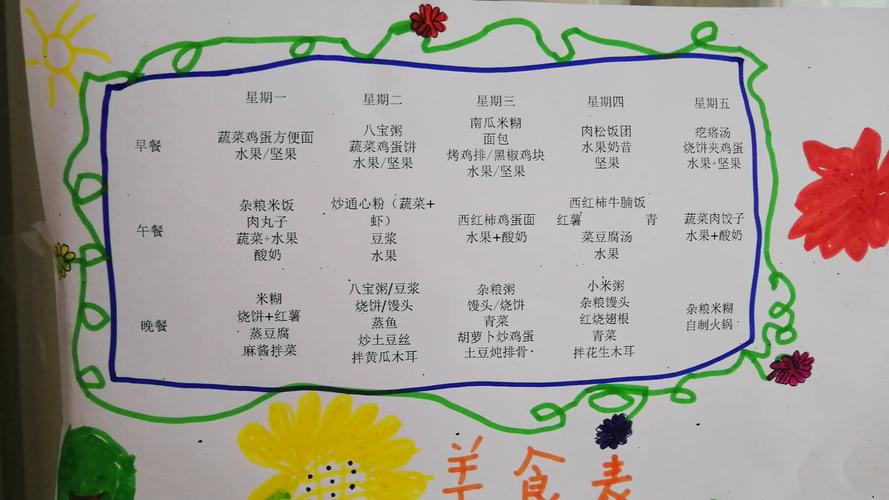 星期一
星期二
星期三
星期四
星期五
早餐
蔬菜鸡蛋方便面
水果/坚果
八宝粥
蔬菜鸡蛋饼
水果/坚果
南瓜米糊
面包
烤鸡排/黑椒鸡块
水果/坚果
肉松饭团
水果奶昔
坚果
疙瘩汤
烧饼夹鸡蛋
水果+坚果
午餐
杂粮米饭
肉丸子
蔬菜+水果
酸奶
炒通心粉（蔬菜+
虾）
豆浆
水果
西红柿鸡蛋面
水果+酸奶
西红柿牛腩饭
红薯 青
菜豆腐汤
水果
蔬菜肉饺子
水果+酸奶
晚餐
米糊
烧饼+红薯
蒸豆腐
麻酱拌菜
八宝粥/豆浆
烧饼/馒头
蒸鱼
炒土豆丝
拌黄瓜木耳
杂粮粥
馒头/烧饼
青菜
胡萝卜炒鸡蛋
土豆炖排骨
小米粥
杂粮馒头
红烧翅根
青菜
拌花生木耳
杂粮米糊
自制火锅
美食表